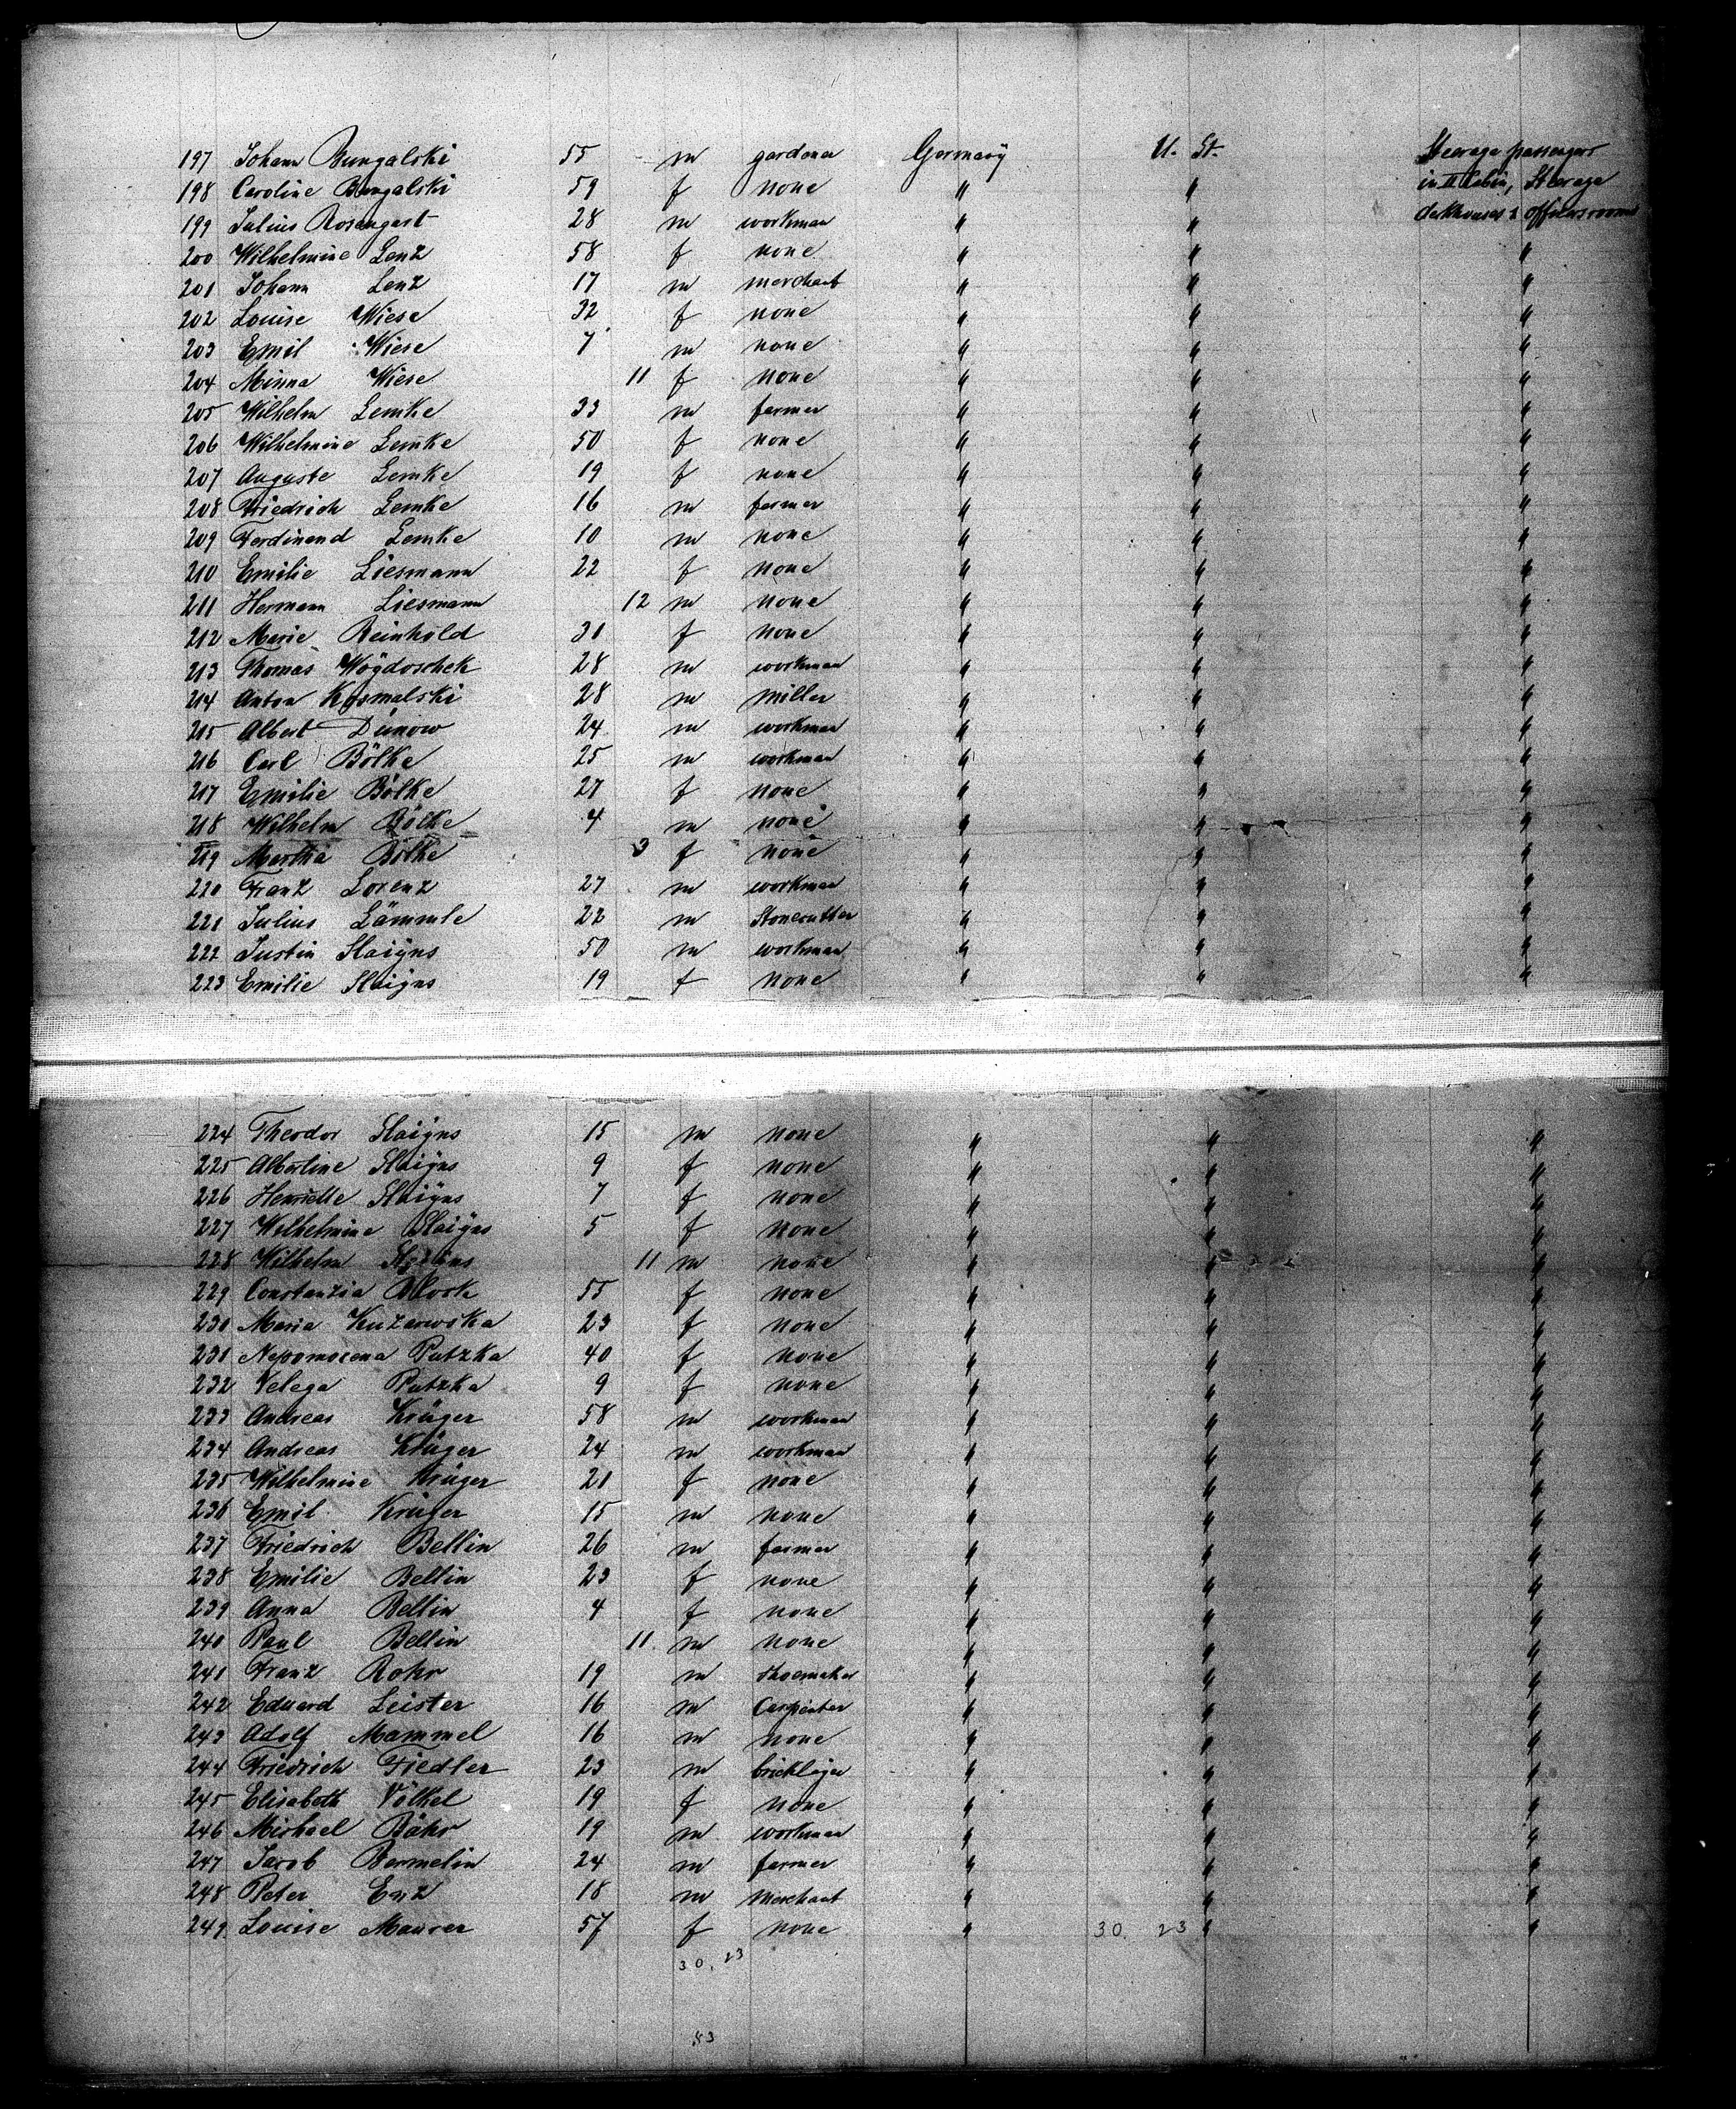 197 Johann Bungalski 55 m gardona Germany U. St. Steerage passengers
198 Caroline Bungalski 59 f none " " in II Cabin, Steerage
199 Julius Rosengart 28 m workman " " dekhouses & officersrooms
200 Wilhelmine Lenz 58 f none " " "
201 Johann Lenz 17 m merchant " " "
202 Louise Wiese 32 f none " " "
203 Emil Wiese 7 m none " " "
204 Minna Wiese 11 f none " " "
205 Wilhelm Lemke 33 m farmer " " "
206 Wilhelmine Lemke 50 f none " " "
207 Auguste Lemke 19 f none " " "
208 Friedrich Lemke 16 m farmer " " "
209 Ferdinand Lemke 10 m none " " "
210 Emilie Liesmann 22 f none " " "
211 Hermann Liesmann 12 m none " " "
212 Marie Reinhold 31 f none " " "
213 Thomas Woÿdoschek 28 m workman " " "
214 Anton Kosmalski 28 m miller " " "
215 Albert Dünow 24 m workman " " "
216 Carl Bölke 25 m workman " " "
217 Emilie Bölke 27 f none " " "
218 Wilhelm Bölke 4 m none " " "
219 Martha Bölke 3 f none " " "
220 Franz Lorenz 27 m workman " " "
221 Julius Lämmle 22 m Stonecutter " " "
222 Justin Slaiÿns 50 m workman " " "
223 Emilie Slaiÿns 19 f none " " "
224 Theodor Slaiÿns 15 m none " " "
225 Albertine Slaiÿns 9 f none " " "
226 Henriette Slaiÿns 7 f none " " "
227 Wilhelmine Slaiÿns 5 f none " " "
228 Wilhelm Slaiÿns 11 m none " " "
229 Constanzia Block 55 f none " " "
230 Maria Kuzarowska 23 f none " " "
231 Nepomocena Putzka 40 f none " " "
232 Velega Putzka 9 f none " " "
233 Andreas Krüger 58 m workman " " "
234 Andreas Krüger 24 m workman " " "
235 Wilhelmine Krüger 21 f none " " "
236 Emil Krüger 15 m none " " "
237 Friedrich Bellin 26 m farmer " " "
238 Emilie Bellin 23 f none " " "
239 Anna Bellin 4 f none " " "
240 Paul Bellin 11 m none " " "
241 Franz Rohr 19 m shoemaker " " "
242 Eduard Leister 16 m Carpenter " " "
243 Adolf Mammel 16 m none " " "
244 Friedrich Fiedler 23 m bricklayer " " "
245 Elisabeth Völkel 19 f none " " "
246 Michael Bähr 19 m workman " " "
247 Jacob Bermelin 24 m farmer " " "
248 Peter Enz 18 m merchant " " "
249 Louise Maurer 57 f none " 30. 23 " "
30. 23
53